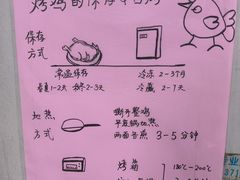 烤鸡的保存和日期
保存
方式
常温保存 冷冻 2-3个月
春夏1-2天 秋冬2-3天 冷藏 1-7天
加热
方式
撕开整鸡
平底锅加热
两面各煎 3-5分钟
烤箱 180℃-200℃